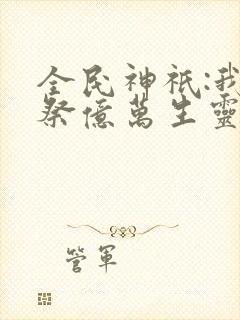 全民神祇:我
祭億萬生靈
管軍